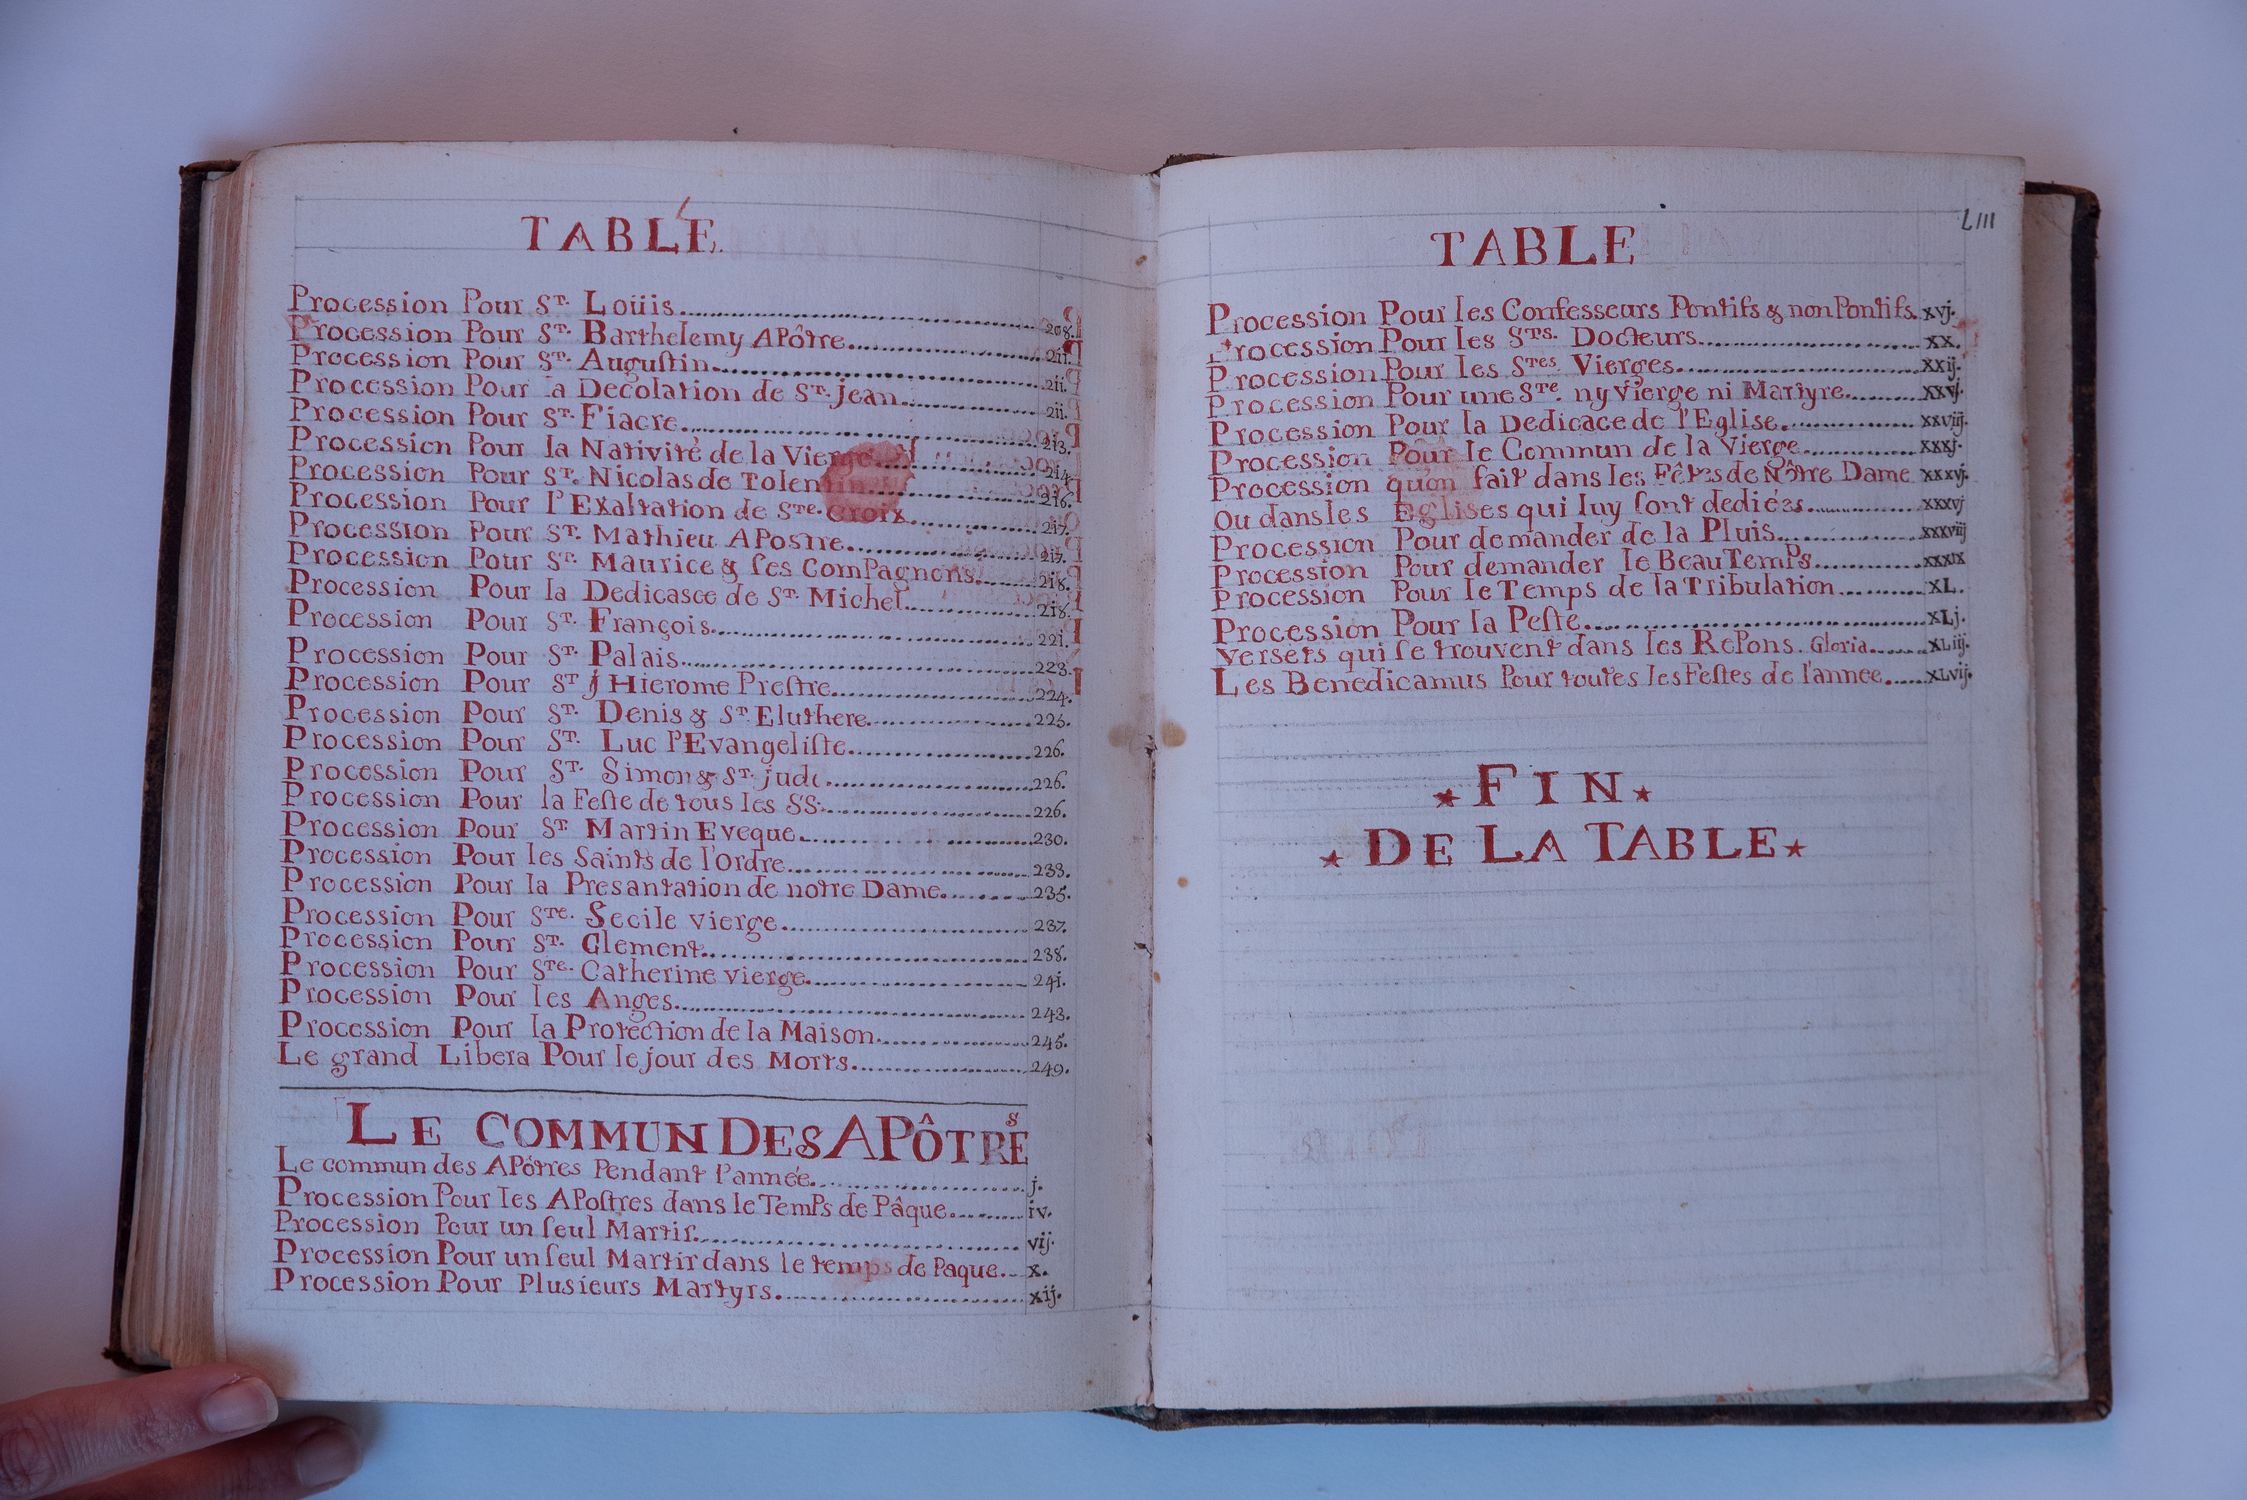 TABLE
Procession Pour St. Loüis. 208.
Procession Pour St. Barthelemy APôtre. 211.
Procession Pour St. Auguſtin. 211.
Procession Pour la Decolation de St. Jean. 211.
Procession Pour St. Fiacre. 213.
Procession Pour la Nativité de la Vierge. 214.
Procession Pour St. Nicolas de Tolentin. 216.
Procession Pour l'Exaltation de Ste. Croix. 217.
Procession Pour St. Mathieu APostre. 217.
Procession Pour St. Maurice & ſes ComPagnons. 218.
Procession Pour la Dedicasce de St. Michel. 218.
Procession Pour St. François. 221.
Procession Pour St. Palais. 223.
Procession Pour St J Hierome Preſtre. 224.
Procession Pour St. Denis & St. Eluthere. 225.
Procession Pour St. Luc l'Evangeliſte. 226.
Procession Pour St. Simon & St. jude. 226.
Procession Pour la Feſte de tous les SS. 226.
Procession Pour St. Martin Eveque. 230.
Procession Pour les Saints de l'ordre. 233.
Procession Pour la Presantation de notre Dame. 235.
Procession Pour Ste. Secile vierge. 237.
Procession Pour St. Clement. 238.
Procession Pour Ste. Catherine vierge. 241.
Procession Pour les Anges. 243.
Procession Pour la Protection de la Maison. 245.
Le grand Libera Pour le jour des Morts. 249.
LE COMMUN DES APÔTRES
Le commun des APôtres Pendant l'année. j.
Procession Pour les APoſtres dans le TemPs de Pâque. iv.
Procession Pour un ſeul Martir. vij.
Procession Pour un ſeul Martir dans le temps de Paque. x.
Procession Pour Plusieurs Martyrs. xij.
LIII
TABLE
Procession Pour les Confesseurs Pontifs & non Pontifs. xvj.
Procession Pour les Sts. Docteurs. xx.
Procession Pour les Stes. Vierges. xxij.
Procession Pour une Ste. ny Vierge ni Martyre. xxvj.
Procession Pour la Dedicace de l'Eglise. xxviij.
Procession Pour le Commun de la Vierge. xxxj.
Procession qu'on fait dans les Fêtes de Nôtre Dame xxxvj.
Ou dans les Eglises qui luy ſont dediées. xxxvj
Procession Pour demander de la Pluis. xxxviij
Procession Pour demander le Beau TemPs. xxxix
Procession Pour le Temps de la Tribulation. XL.
Procession Pour la Peſte. XLj.
Versets qui ſe trouvent dans les RePons. Gloria. XLiij.
Les Benedicamus Pour toutes les Feſtes de l'année. XLvij.
★ FIN ★
★ DE LA TABLE ★